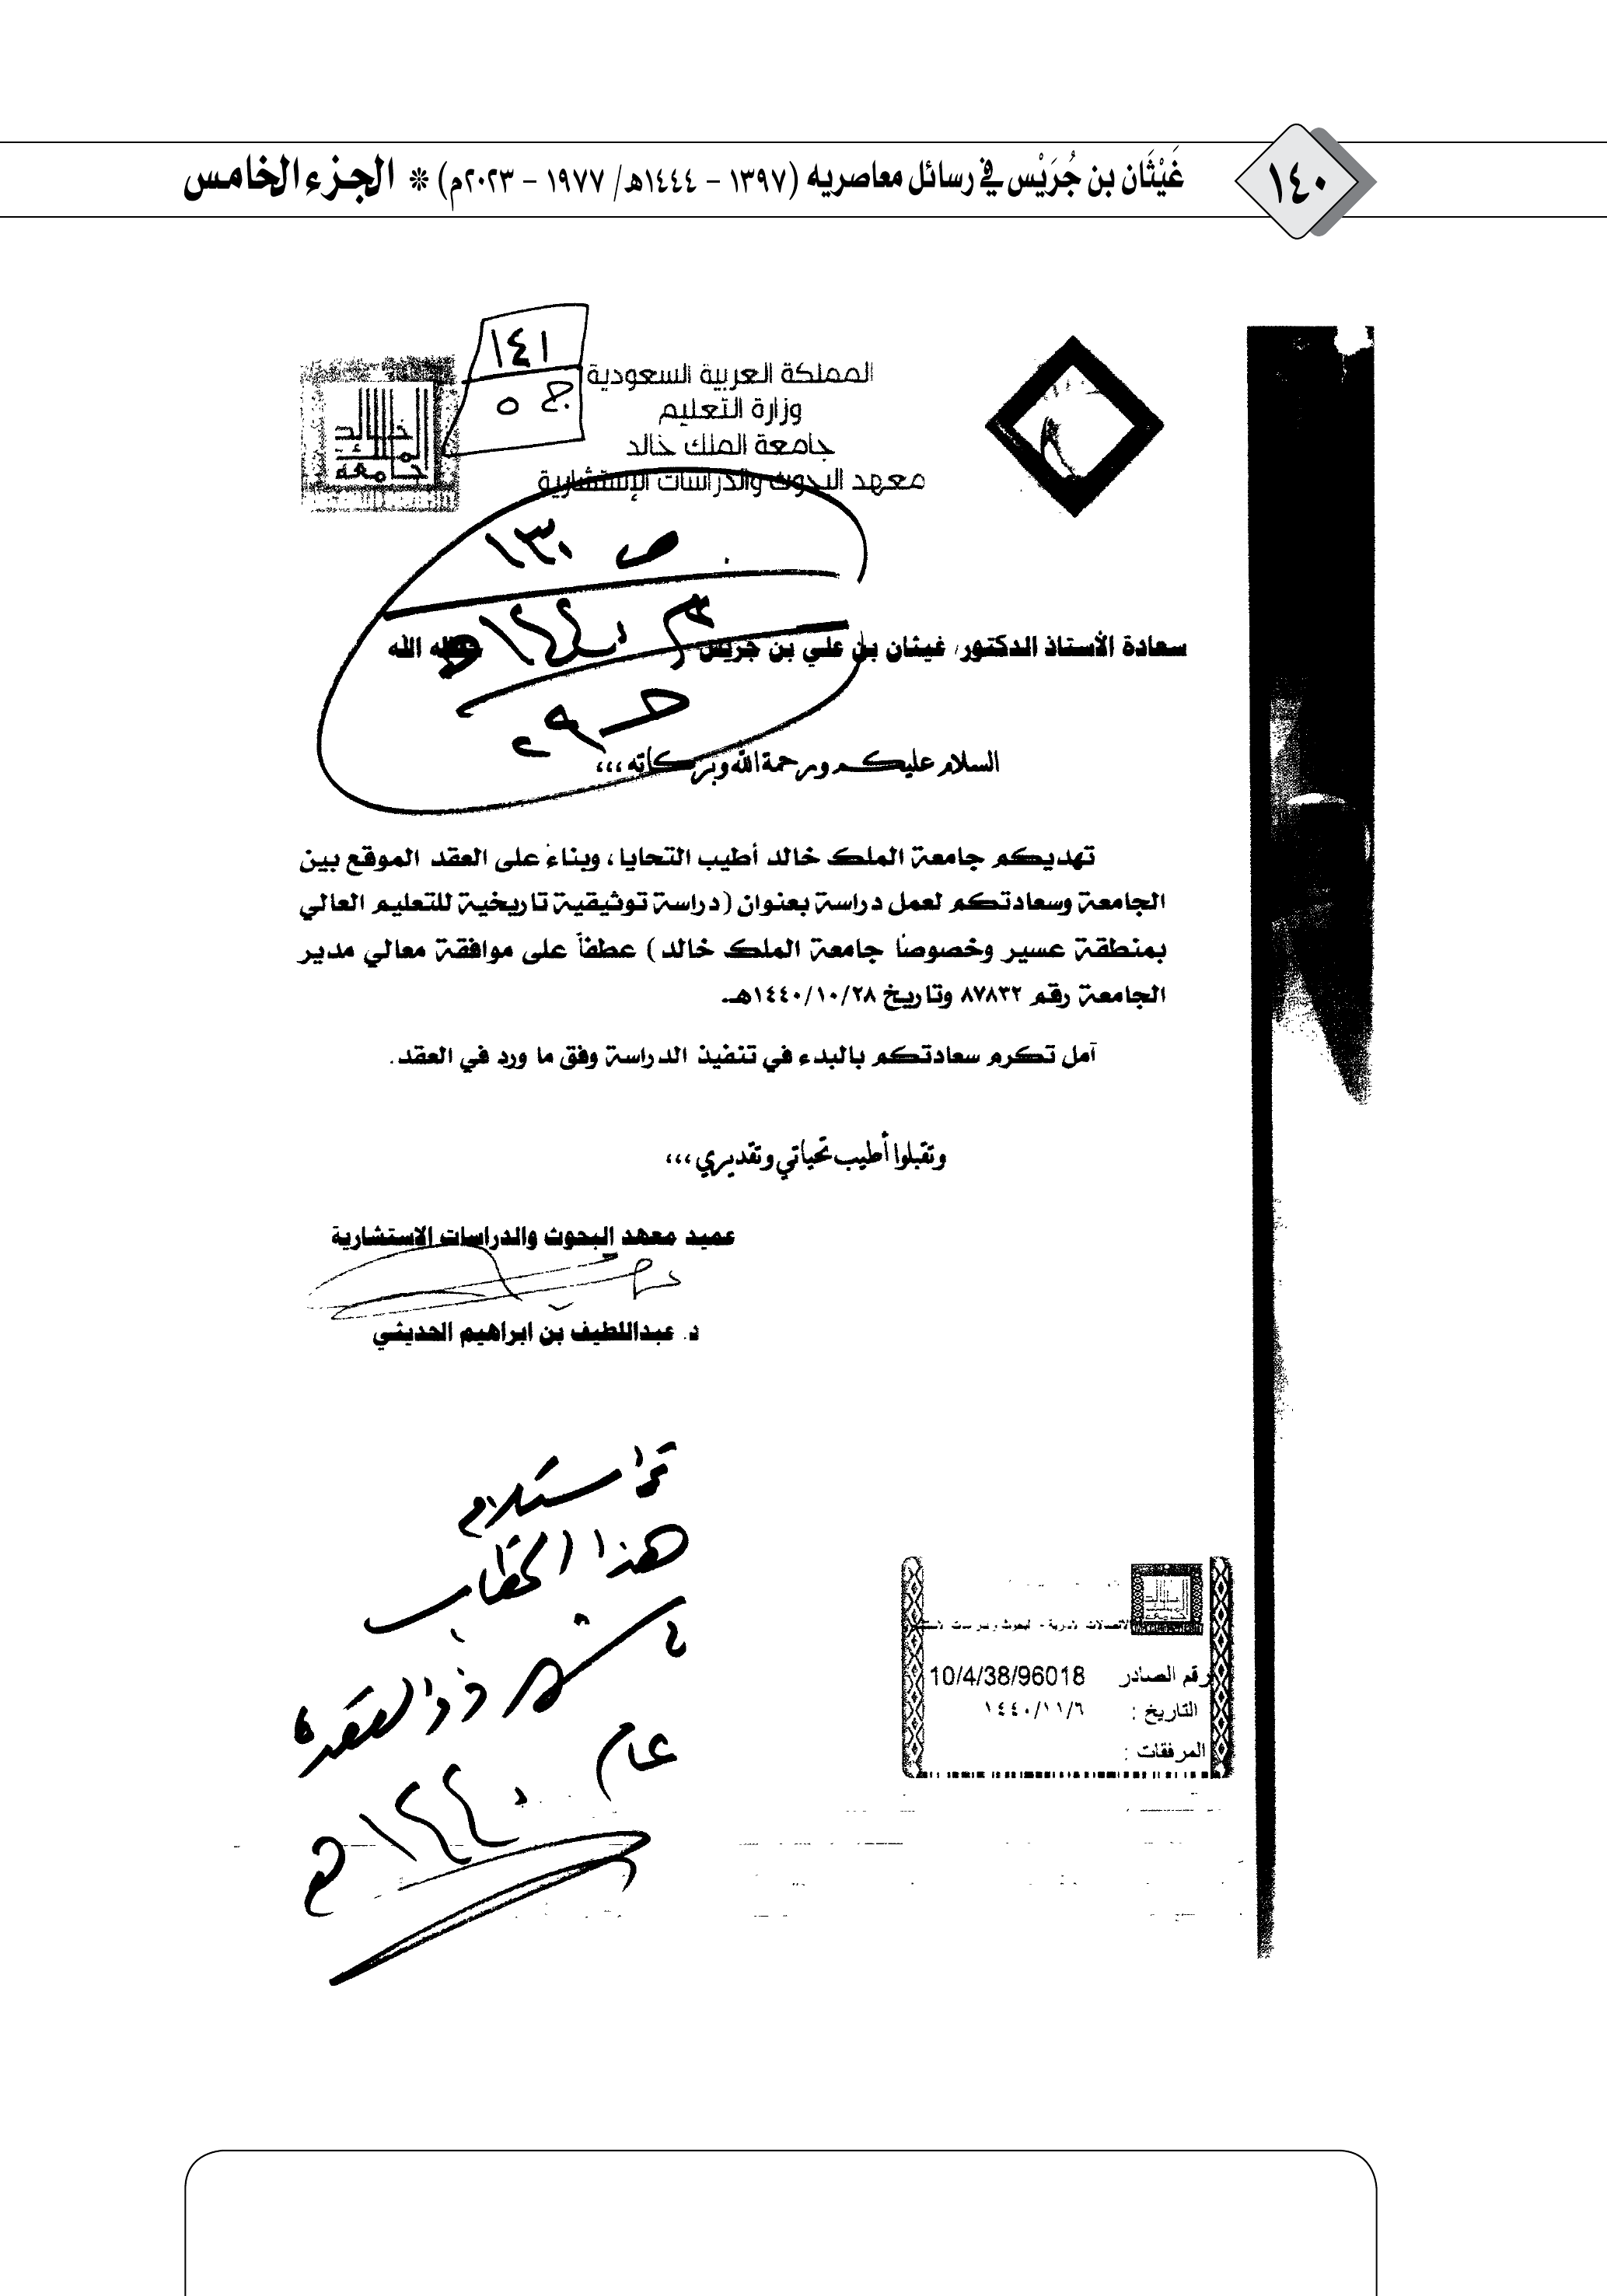 ١٤٠
غَيْثَان بن جُرَيْس في رسائل معاصريه (١٣٩٧ – ١٤٤٤هـ/ ١٩٧٧ – ٢٠٢٣م) * الجزء الخامس
١٤١
ج ٥
المملكة العربية السعودية
وزارة التعليم
جامعة الملك خالد
معهد البحوث والدراسات الإستشارية
جامعة الملك خالد
ص ١٣٠
١٤٤٠هـ
سعادة الأستاذ الدكتور/ غيثان بن علي بن جريس
الله
السلام عليكم ورحمة الله وبركاته ،،،
تهديكم جامعة الملك خالد أطيب التحايا، وبناءً على العقد الموقع بين
الجامعة وسعادتكم لعمل دراسة بعنوان (دراسة توثيقية تاريخية للتعليم العالي
بمنطقة عسير وخصوصاً جامعة الملك خالد) عطفاً على موافقة معالي مدير
الجامعة رقم ٨٧٨٣٢ وتاريخ ١٤٤٠/١٠/٢٨هـ.
آمل تكرم سعادتكم بالبدء في تنفيذ الدراسة وفق ما ورد في العقد.
وتقبلوا أطيب تحياتي وتقديري ،،،
عميد معهد البحوث والدراسات الاستشارية
د. عبداللطيف بن ابراهيم الحديثي
تم استلام
هذا الخطاب
شهر ذو القعدة
عام ١٤٤٠هـ
رقم الصادر 10/4/38/96018
التاريخ : ١٤٤٠/١١/٦
المرفقات :